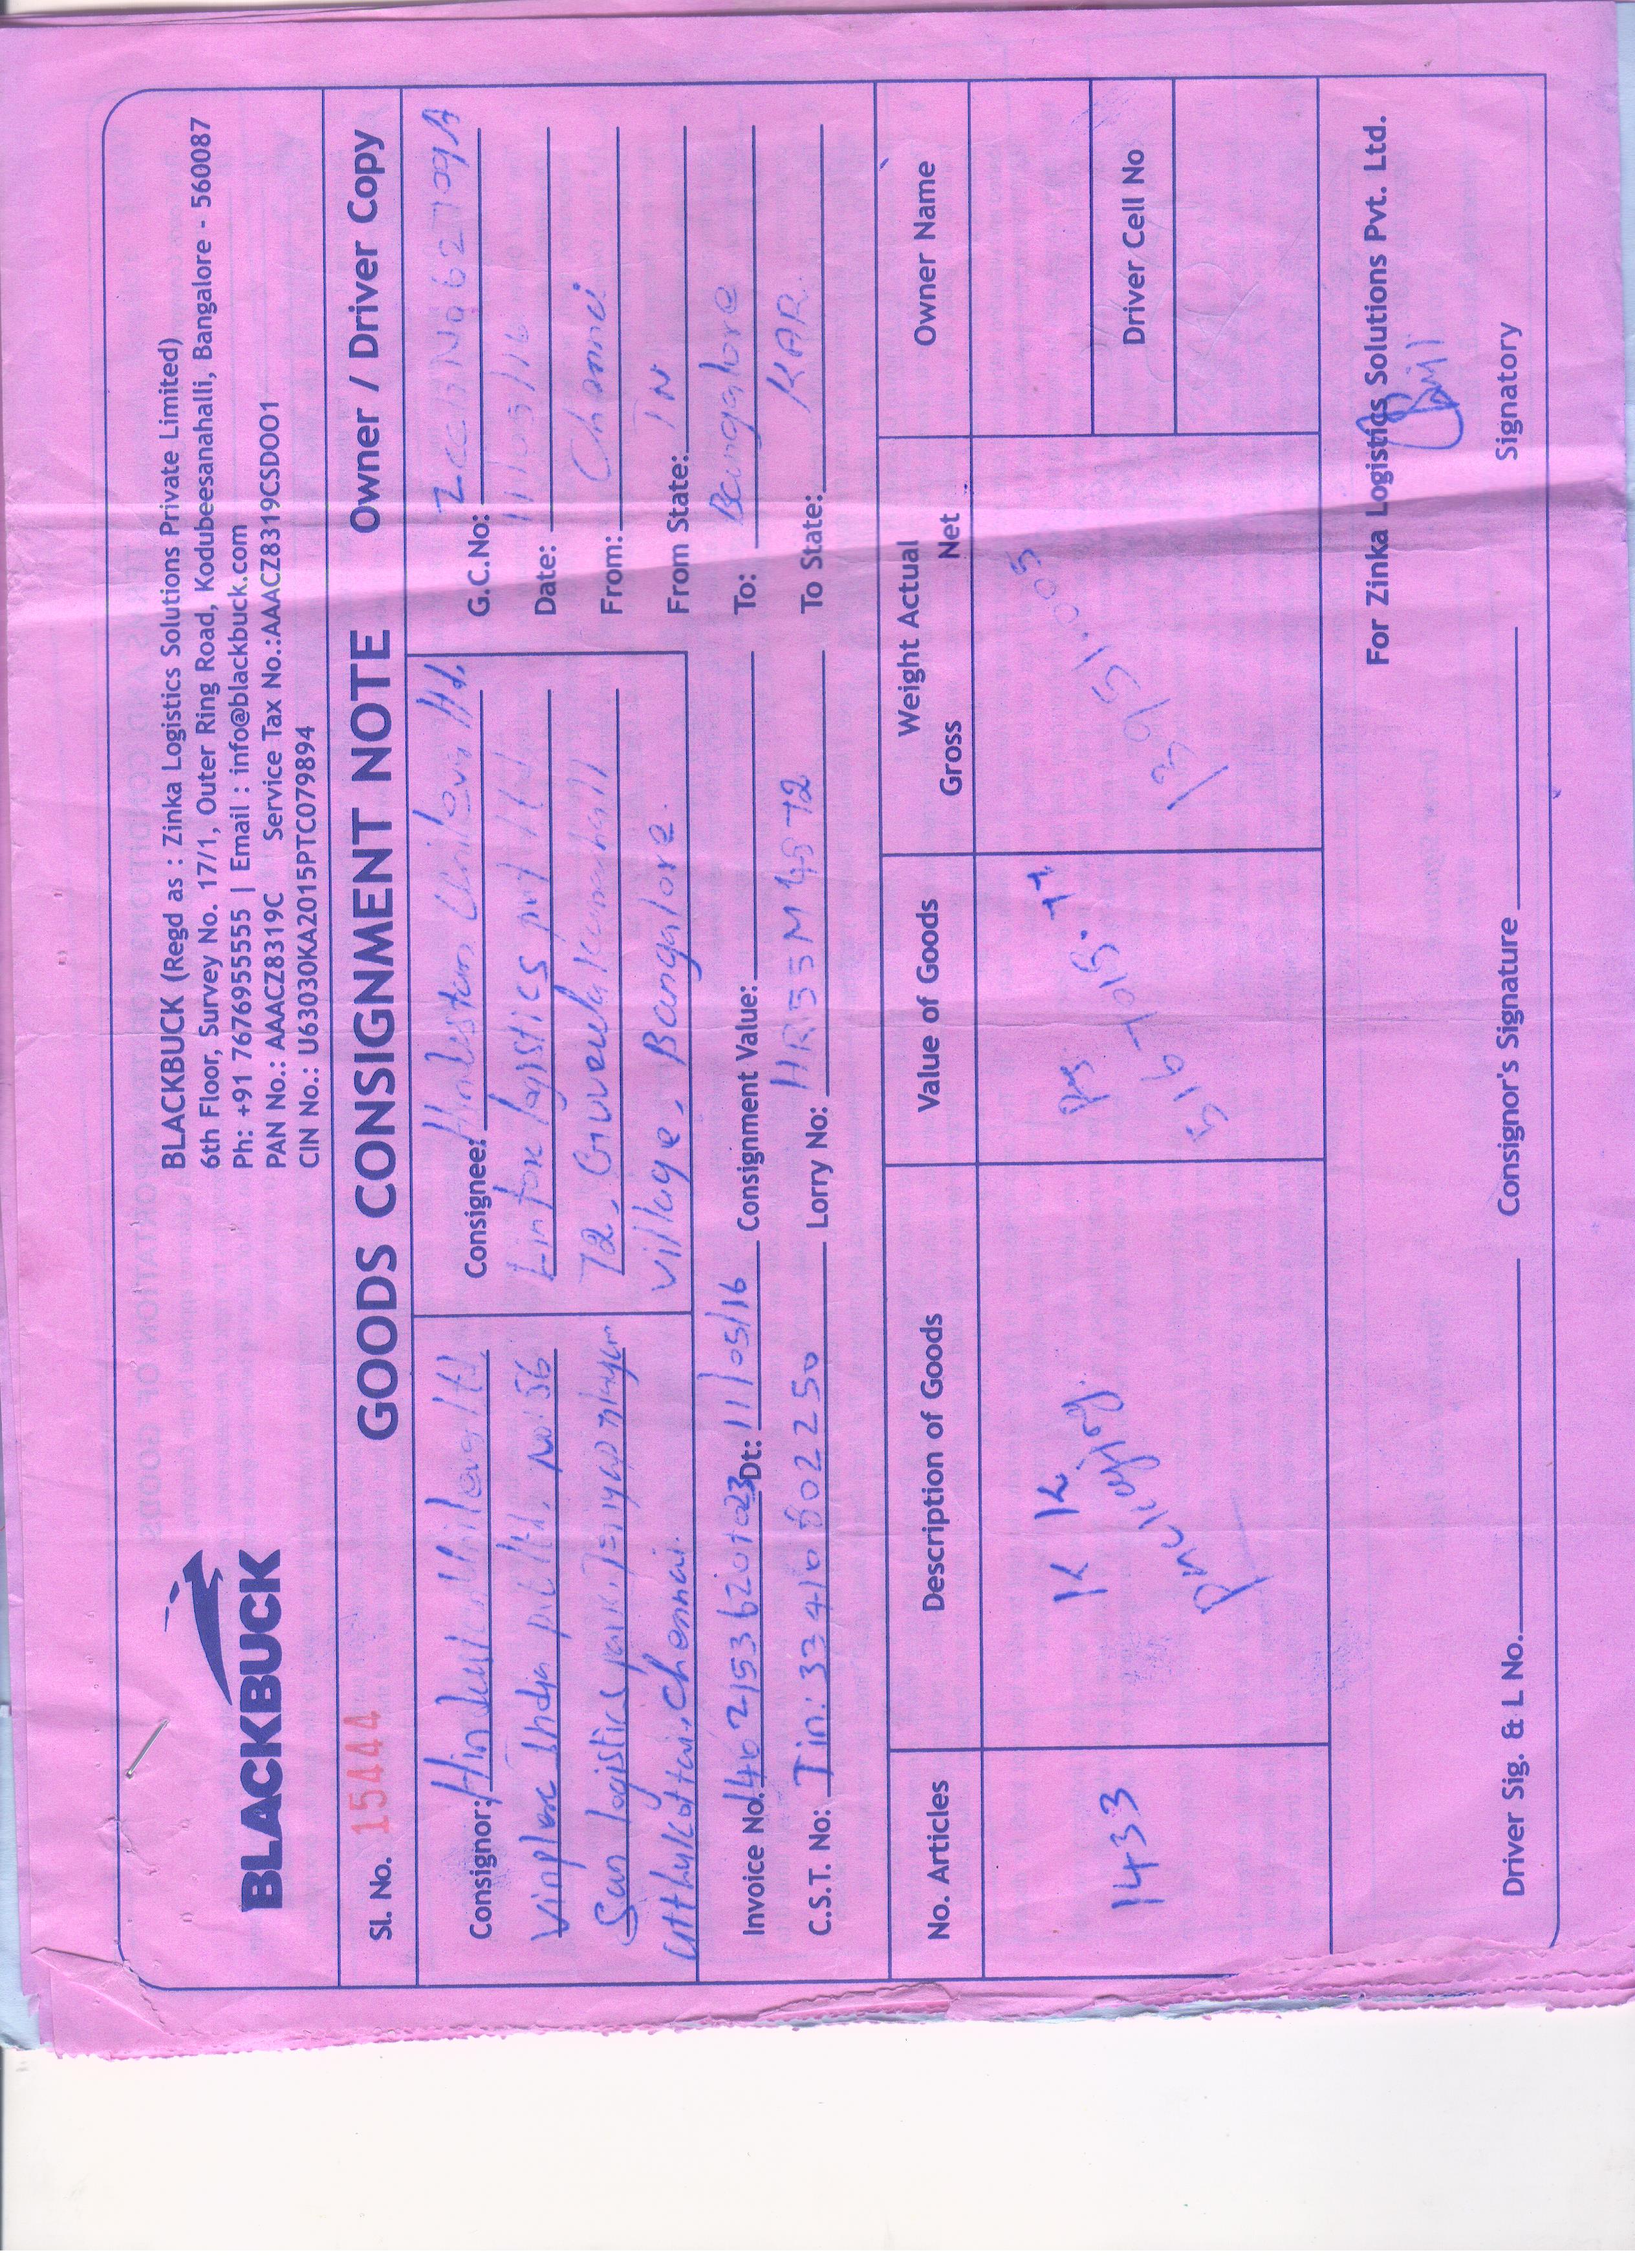 BLACKBUCK
BLACKBUCK (Regd as : Zinka Logistics Solutions Private Limited)
6th Floor, Survey No. 17/1, Outer Ring Road, Kodubeesanahalli, Bangalore - 560087
Ph: +91 7676955555 | Email : info@blackbuck.com
PAN No.: AAACZ8319C Service Tax No.:AAACZ8319CSD001
CIN No.: U63030KA2015PTC079894
Sl. No. 15444 GOODS CONSIGNMENT NOTE Owner / Driver Copy
Consignor: Hindustan Unilever ltd
India pvt ltd, No: 56
Sun logistics park,
Chennai.
Consignee: Hindustan Unilever ltd.
logistics pvt ltd
72,
Village, Bangalore.
G.C.No:
Date: 11/05/16
From: Channei
From State: TN
To: Bangalore
To State: KAR
Invoice No. Dt: 11/05/16 Consignment Value:
C.S.T. No: Tin: Lorry No:
No. Articles Description of Goods Value of Goods Weight Actual Owner Name
Gross Net
1433 K K
13951.005
Driver Cell No
For Zinka Logistics Solutions Pvt. Ltd.
Driver Sig. & L No. Consignor's Signature Signatory